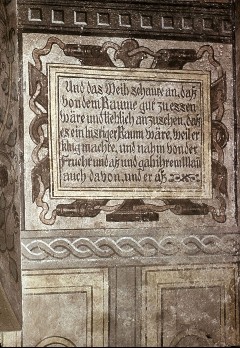 Und das Weib schaute an, daß
von dem Baume gut zu essen
wäre und lieblich anzusehen, daß
es ein lustiger Baum wäre, weil er
klug machte, und nahm von der
Frucht und aß und gab ihrem Mañ
auch davon, und er aß